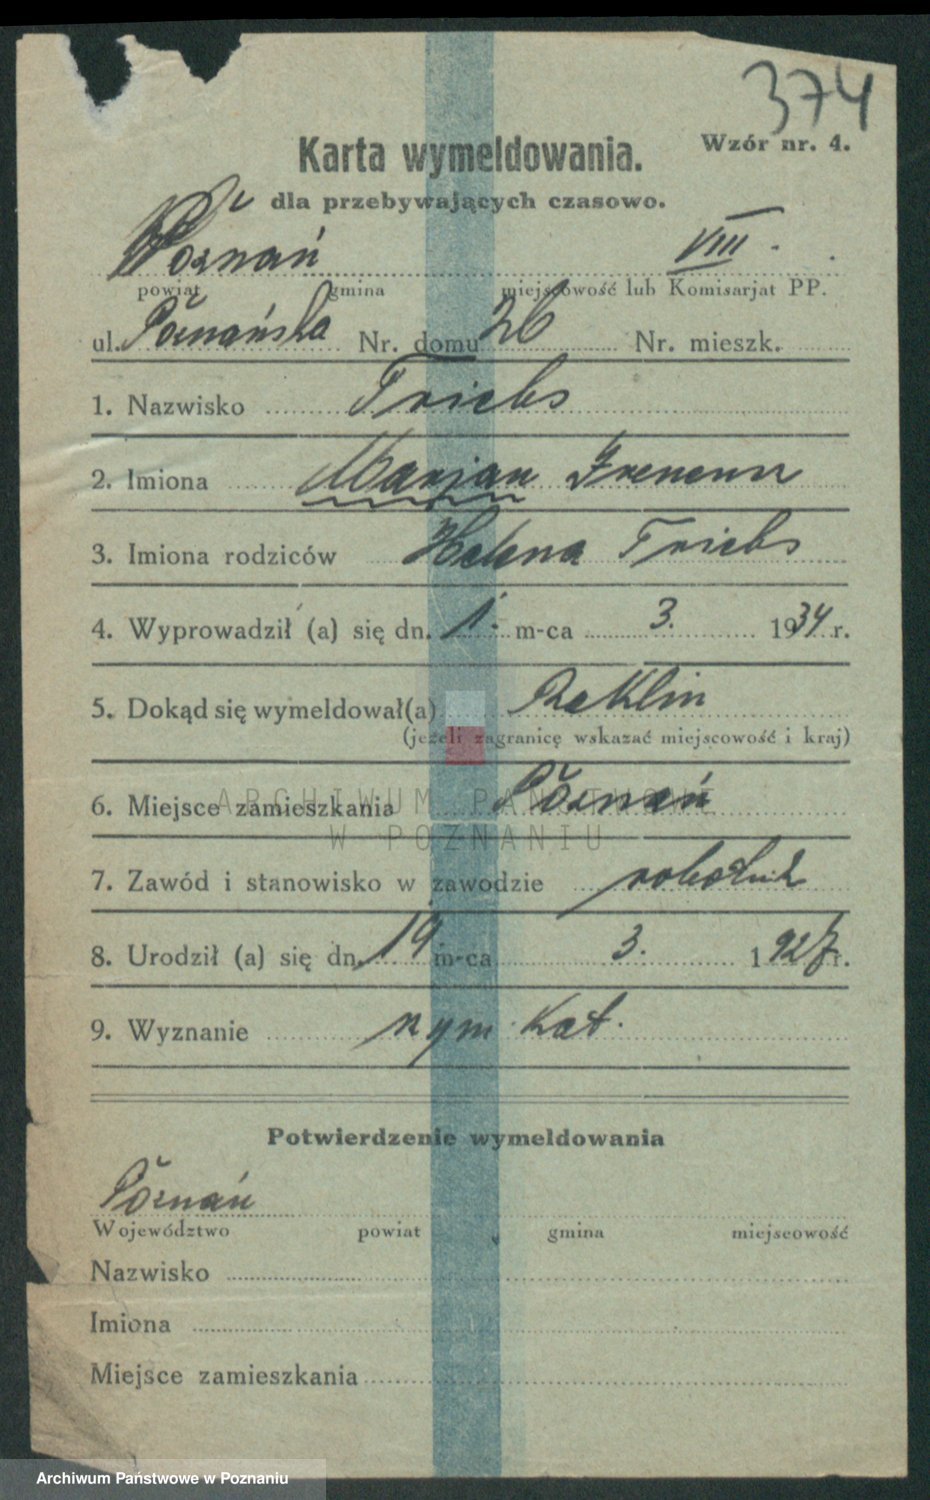 374
Karta wymeldowania.
Wzór nr. 4.
dla przebywających czasowo.
Poznań VIII.
powiat gmina miejscowość lub Komisarjat PP.
ul. Poznańska Nr. domu 26 Nr. mieszk.
1. Nazwisko Triebs
2. Imiona Marjan Ireneusz
3. Imiona rodziców Helena Triebs
4. Wyprowadził (a) się dn. 1. m-ca 3. 1934 r.
5. Dokąd się wymeldował(a)
(jeżeli zagranicę wskazać miejscowość i kraj)
ARCHIWUM PAŃSTWOWE
6. Miejsce zamieszkania Poznań
W POZNANIU
7. Zawód i stanowisko w zawodzie robotnik
8. Urodził (a) się dn. 19 m-ca 3. 1927 r.
9. Wyznanie rzym. kat.
Potwierdzenie wymeldowania
Poznań
Województwo powiat gmina miejscowość
Nazwisko
Imiona
Miejsce zamieszkania
Archiwum Państwowe w Poznaniu